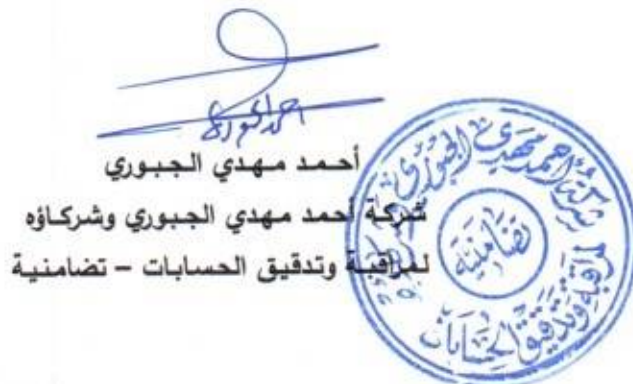 احمد الجبوري
أحمد مهدي الجبوري
شركة أحمد مهدي الجبوري وشركاؤه
لمراقبة وتدقيق الحسابات – تضامنية
شركة احمد مهدي الجبوري وشركاؤه
لمراقبة وتدقيق الحسابات
تضامنية